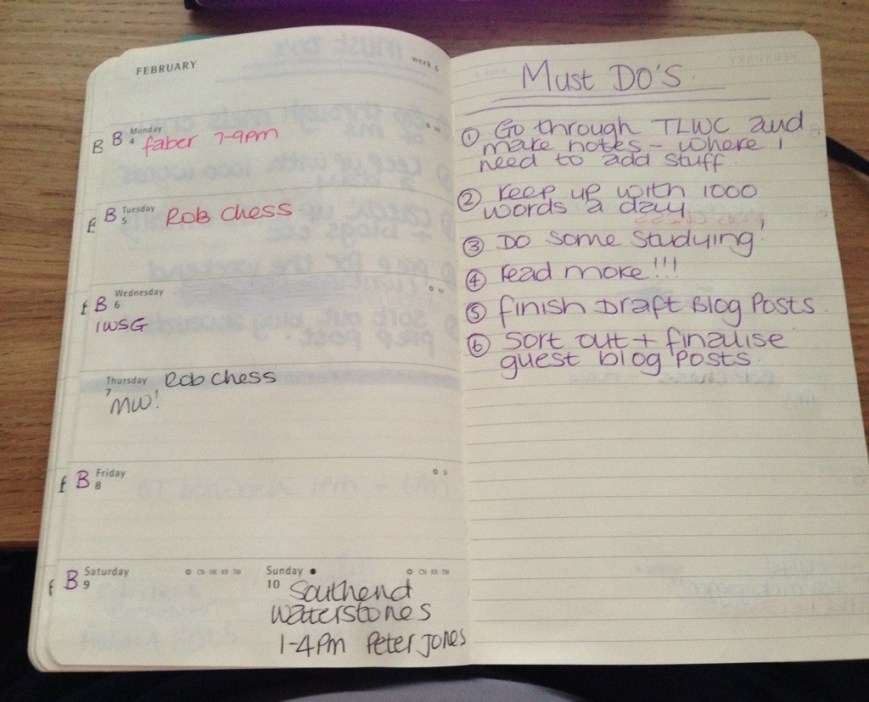 FEBRUARY
week 6
Monday
B B 4 faber 7-9pm
Tuesday
f B 5 Rob chess
Wednesday
f B 6
IWSG
Thursday
7 Rob chess
MW!
Friday
f B 8
Saturday
f B 9
Sunday
10 Southend
Watterstones
1-4pm Peter Jones
Must DO'S
① Go through TLWC and
make notes - where I
need to add stuff
② keep up with 1000
words a day
③ Do some studying!
④ read more!!!
⑤ finish Draft Blog Posts
⑥ Sort out + finalise
guest blog posts.